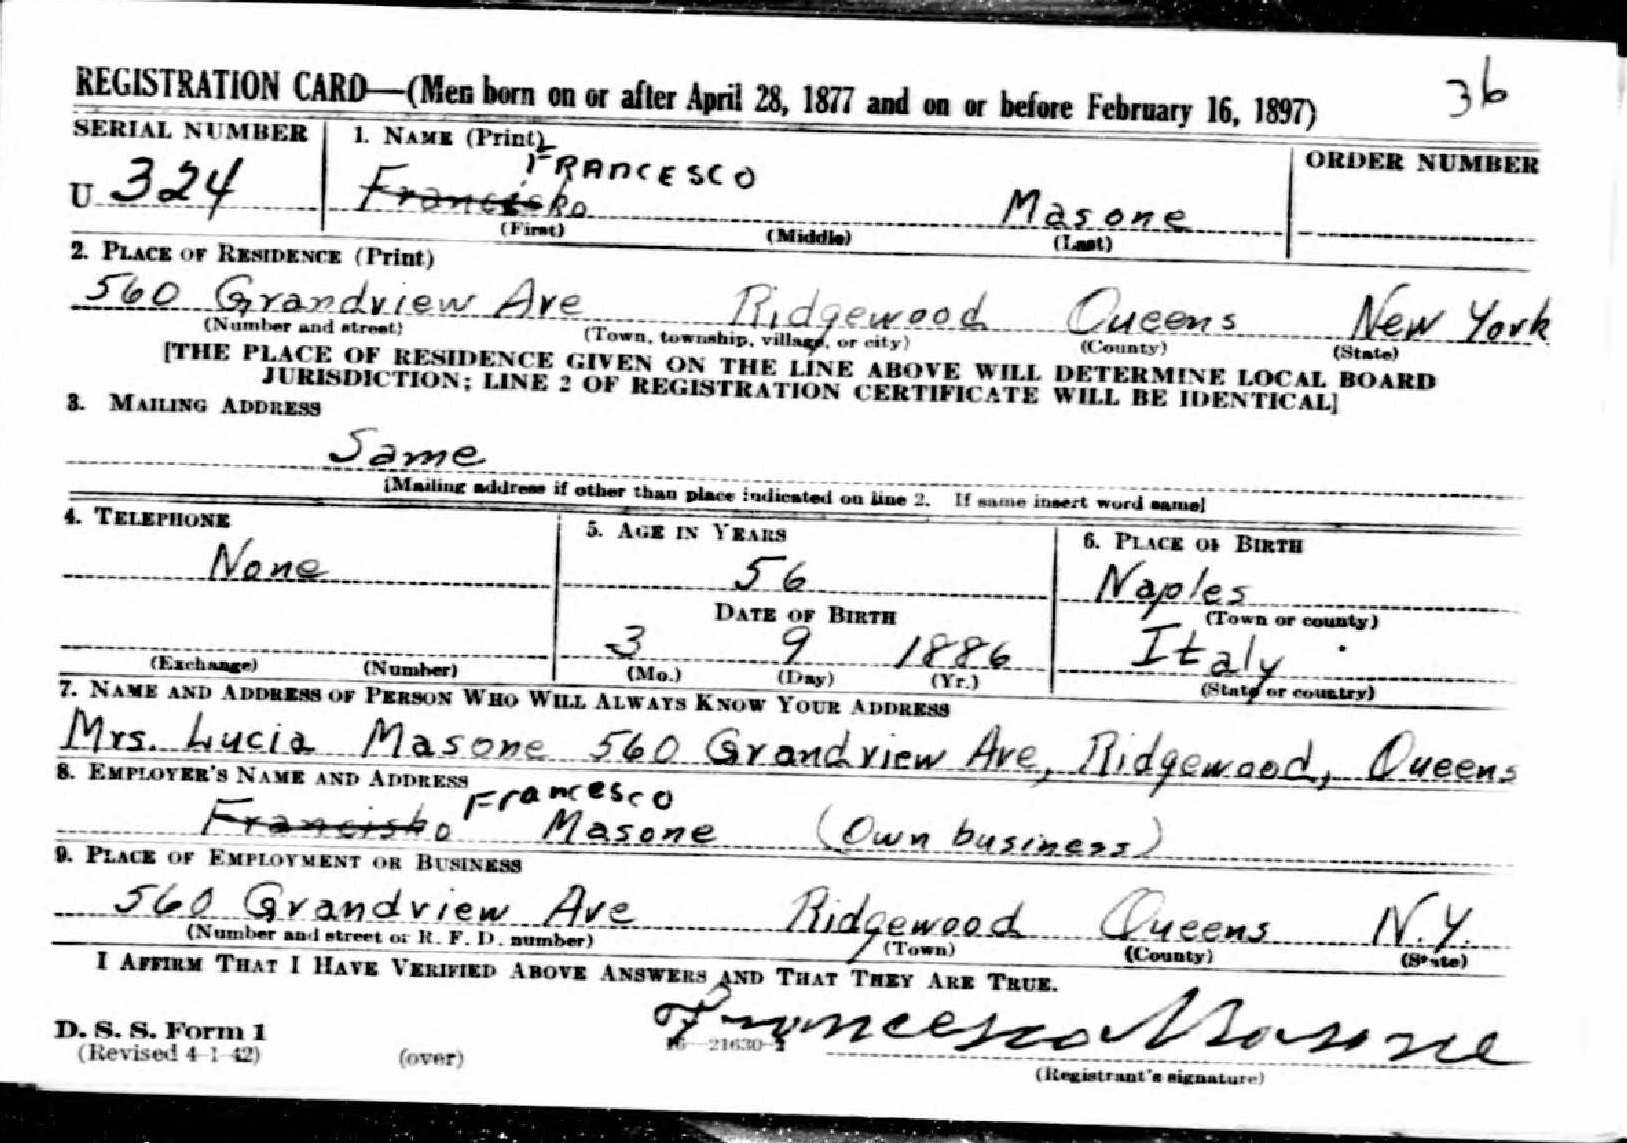 36
REGISTRATION CARD—(Men born on or after April 28, 1877 and on or before February 16, 1897)
SERIAL NUMBER 1. NAME (Print) ORDER NUMBER
FRANCESCO
U 324 Francisko Masone
(First) (Middle) (Last)
2. PLACE OF RESIDENCE (Print)
560 Grandview Ave Ridgewood Queens New York
(Number and street) (Town, township, village, or city) (County) (State)
[THE PLACE OF RESIDENCE GIVEN ON THE LINE ABOVE WILL DETERMINE LOCAL BOARD
JURISDICTION; LINE 2 OF REGISTRATION CERTIFICATE WILL BE IDENTICAL]
3. MAILING ADDRESS
Same
[Mailing address if other than place indicated on line 2. If same insert word same]
4. TELEPHONE 5. AGE IN YEARS 6. PLACE OF BIRTH
None 56 Naples
DATE OF BIRTH (Town or county)
3 9 1886 Italy
(Exchange) (Number) (Mo.) (Day) (Yr.) (State or country)
7. NAME AND ADDRESS OF PERSON WHO WILL ALWAYS KNOW YOUR ADDRESS
Mrs. Lucia Masone 560 Grandview Ave, Ridgewood, Queens
8. EMPLOYER'S NAME AND ADDRESS
Francesco
Francisko Masone (Own business)
9. PLACE OF EMPLOYMENT OR BUSINESS
560 Grandview Ave Ridgewood Queens N.Y.
(Number and street or R. F. D. number) (Town) (County) (State)
I AFFIRM THAT I HAVE VERIFIED ABOVE ANSWERS AND THAT THEY ARE TRUE.
Francesco Masone
D. S. S. Form 1
(Revised 4-1-42) (over) 16—21630-2
(Registrant's signature)